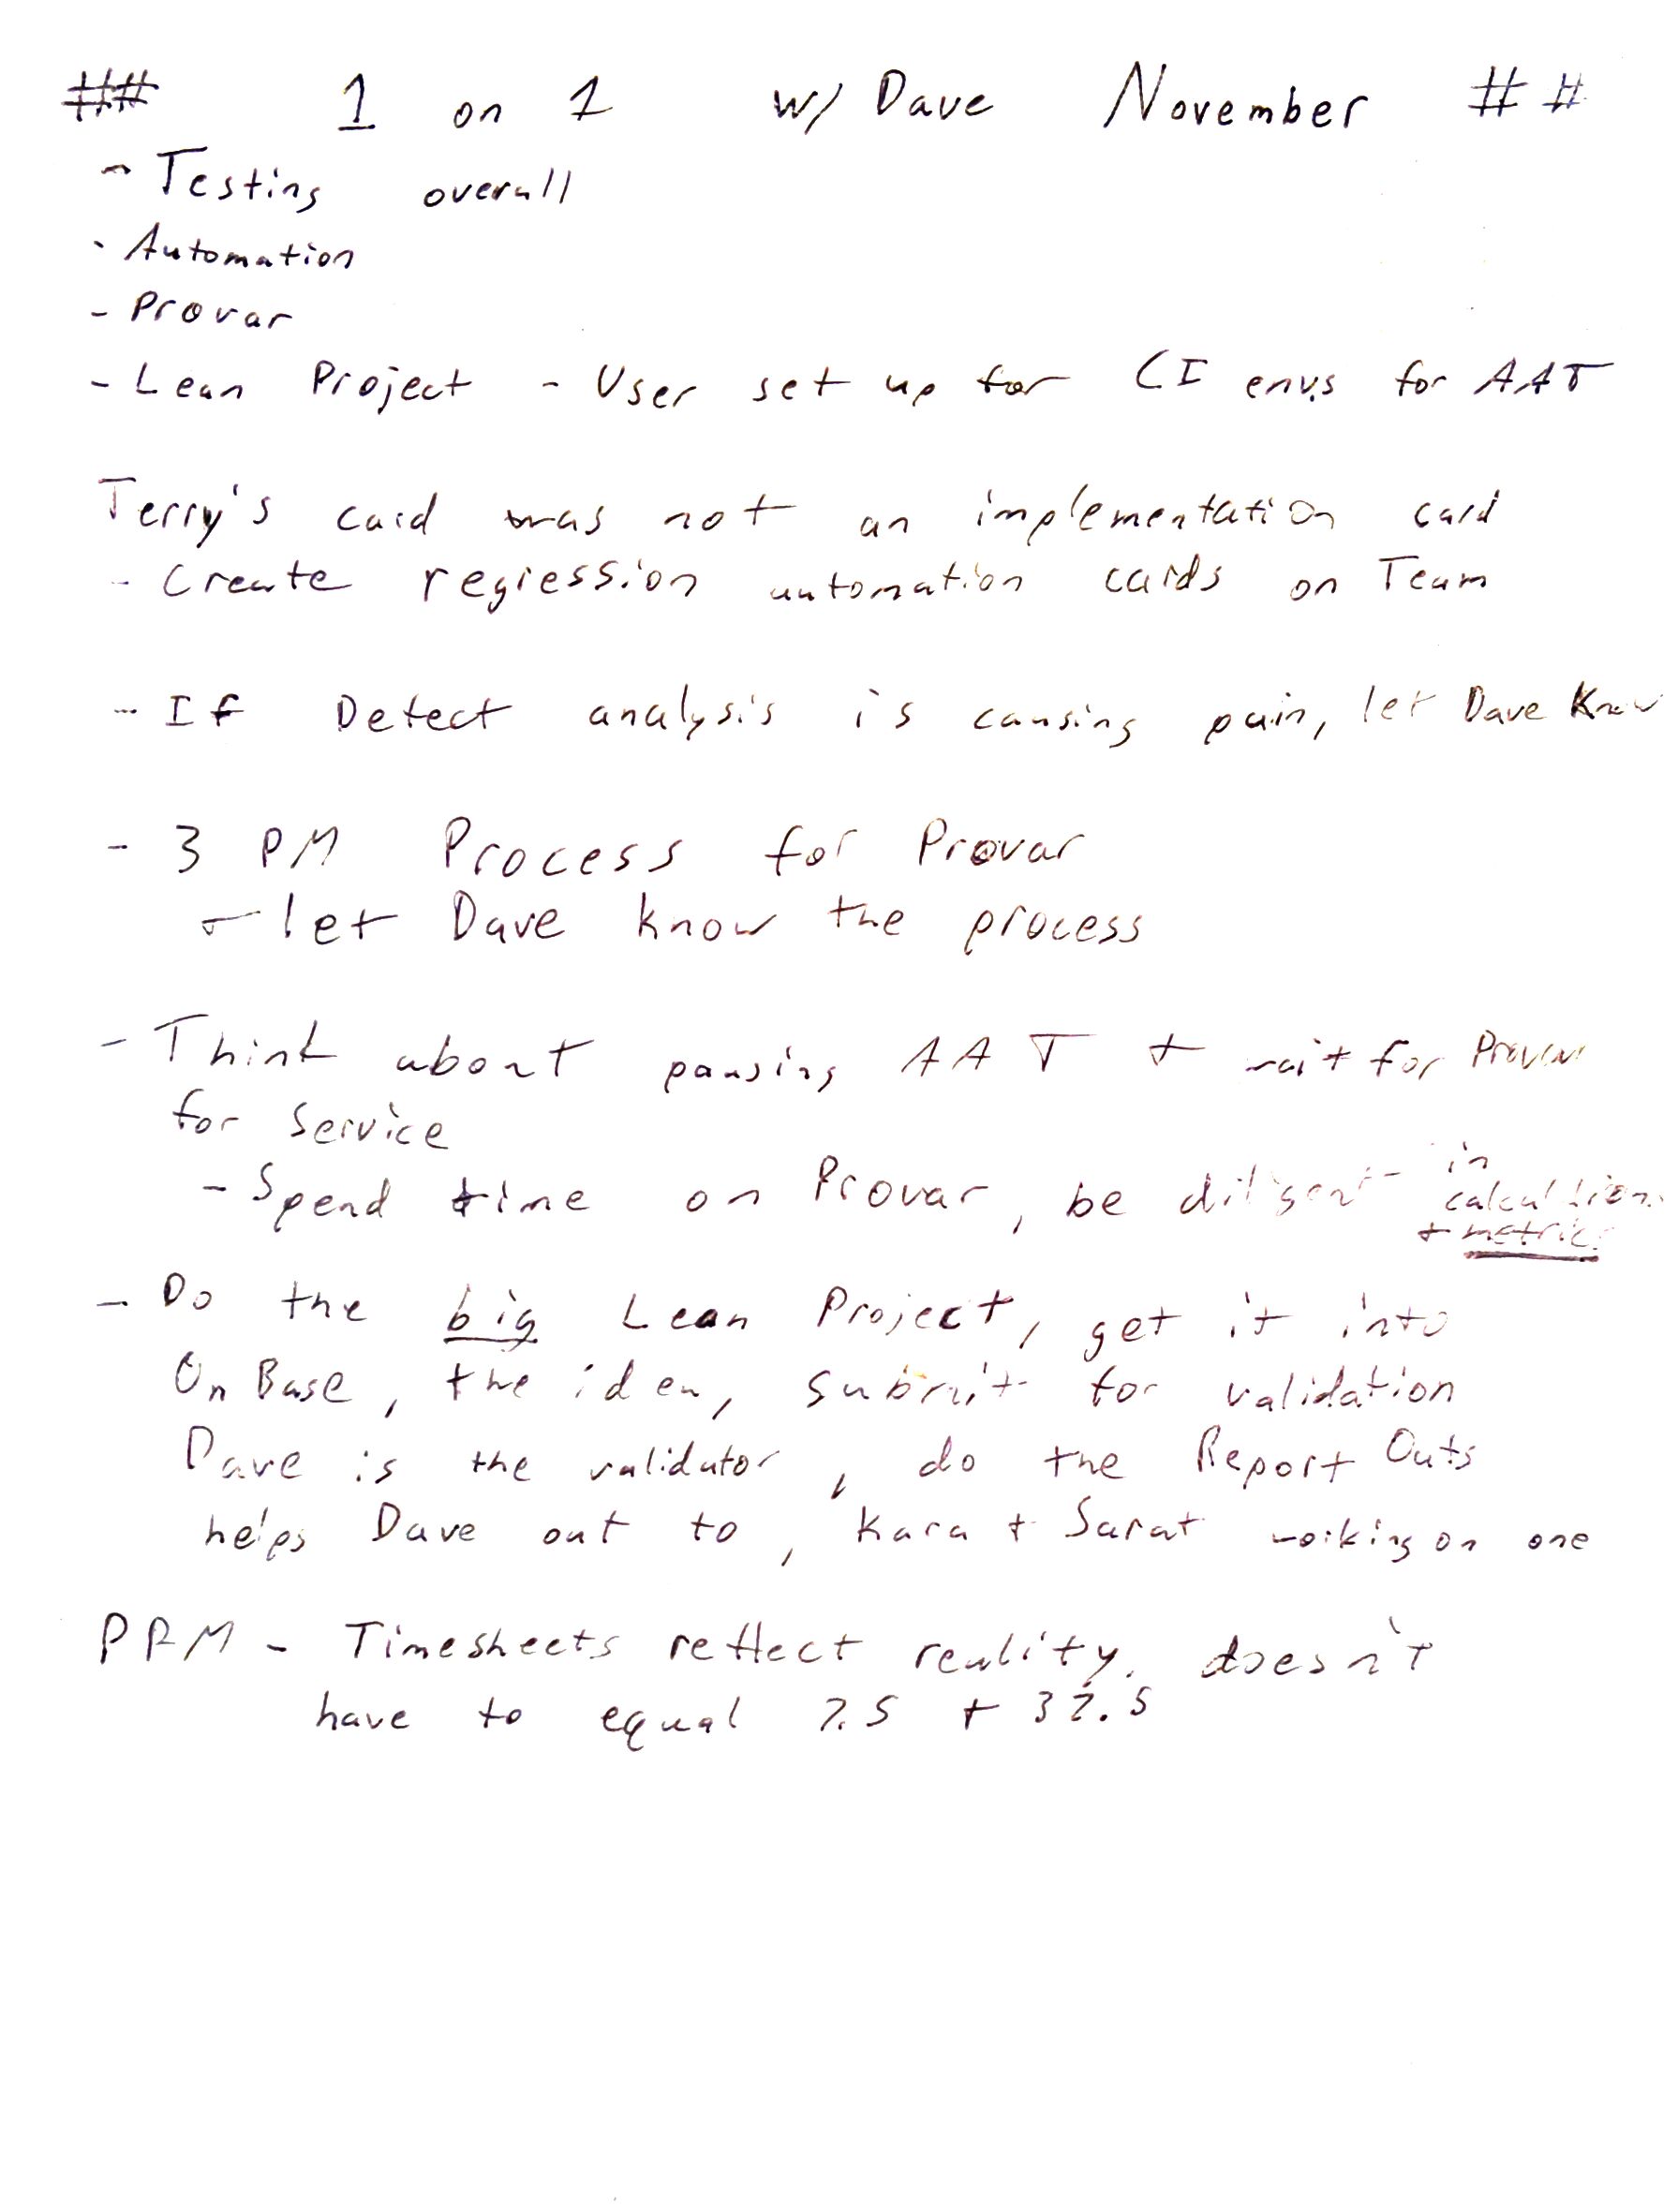 ## 1 on 1 w/ Dave November ##
- Testing overall
- Automation
- Provar
- Lean Project - User set up for CI envs for AAT
Terry's card was not an implementation card
- Create regression automation cards on Team
- If Defect analysis is causing pain, let Dave Know
- 3 PM Process for Provar
- let Dave know the process
- Think about pausing AAT + wait for Provar
for Service
- Spend time on Provar, be diligent in
calcultions
+ metrics
- Do the big Lean Project, get it into
OnBase, the idea, submit for validation
Dave is the validator, do the Report Outs
helps Dave out to, Kara + Sarat working on one
PPM - Timesheets reflect reality, doesn't
have to equal 7.5 + 37.5